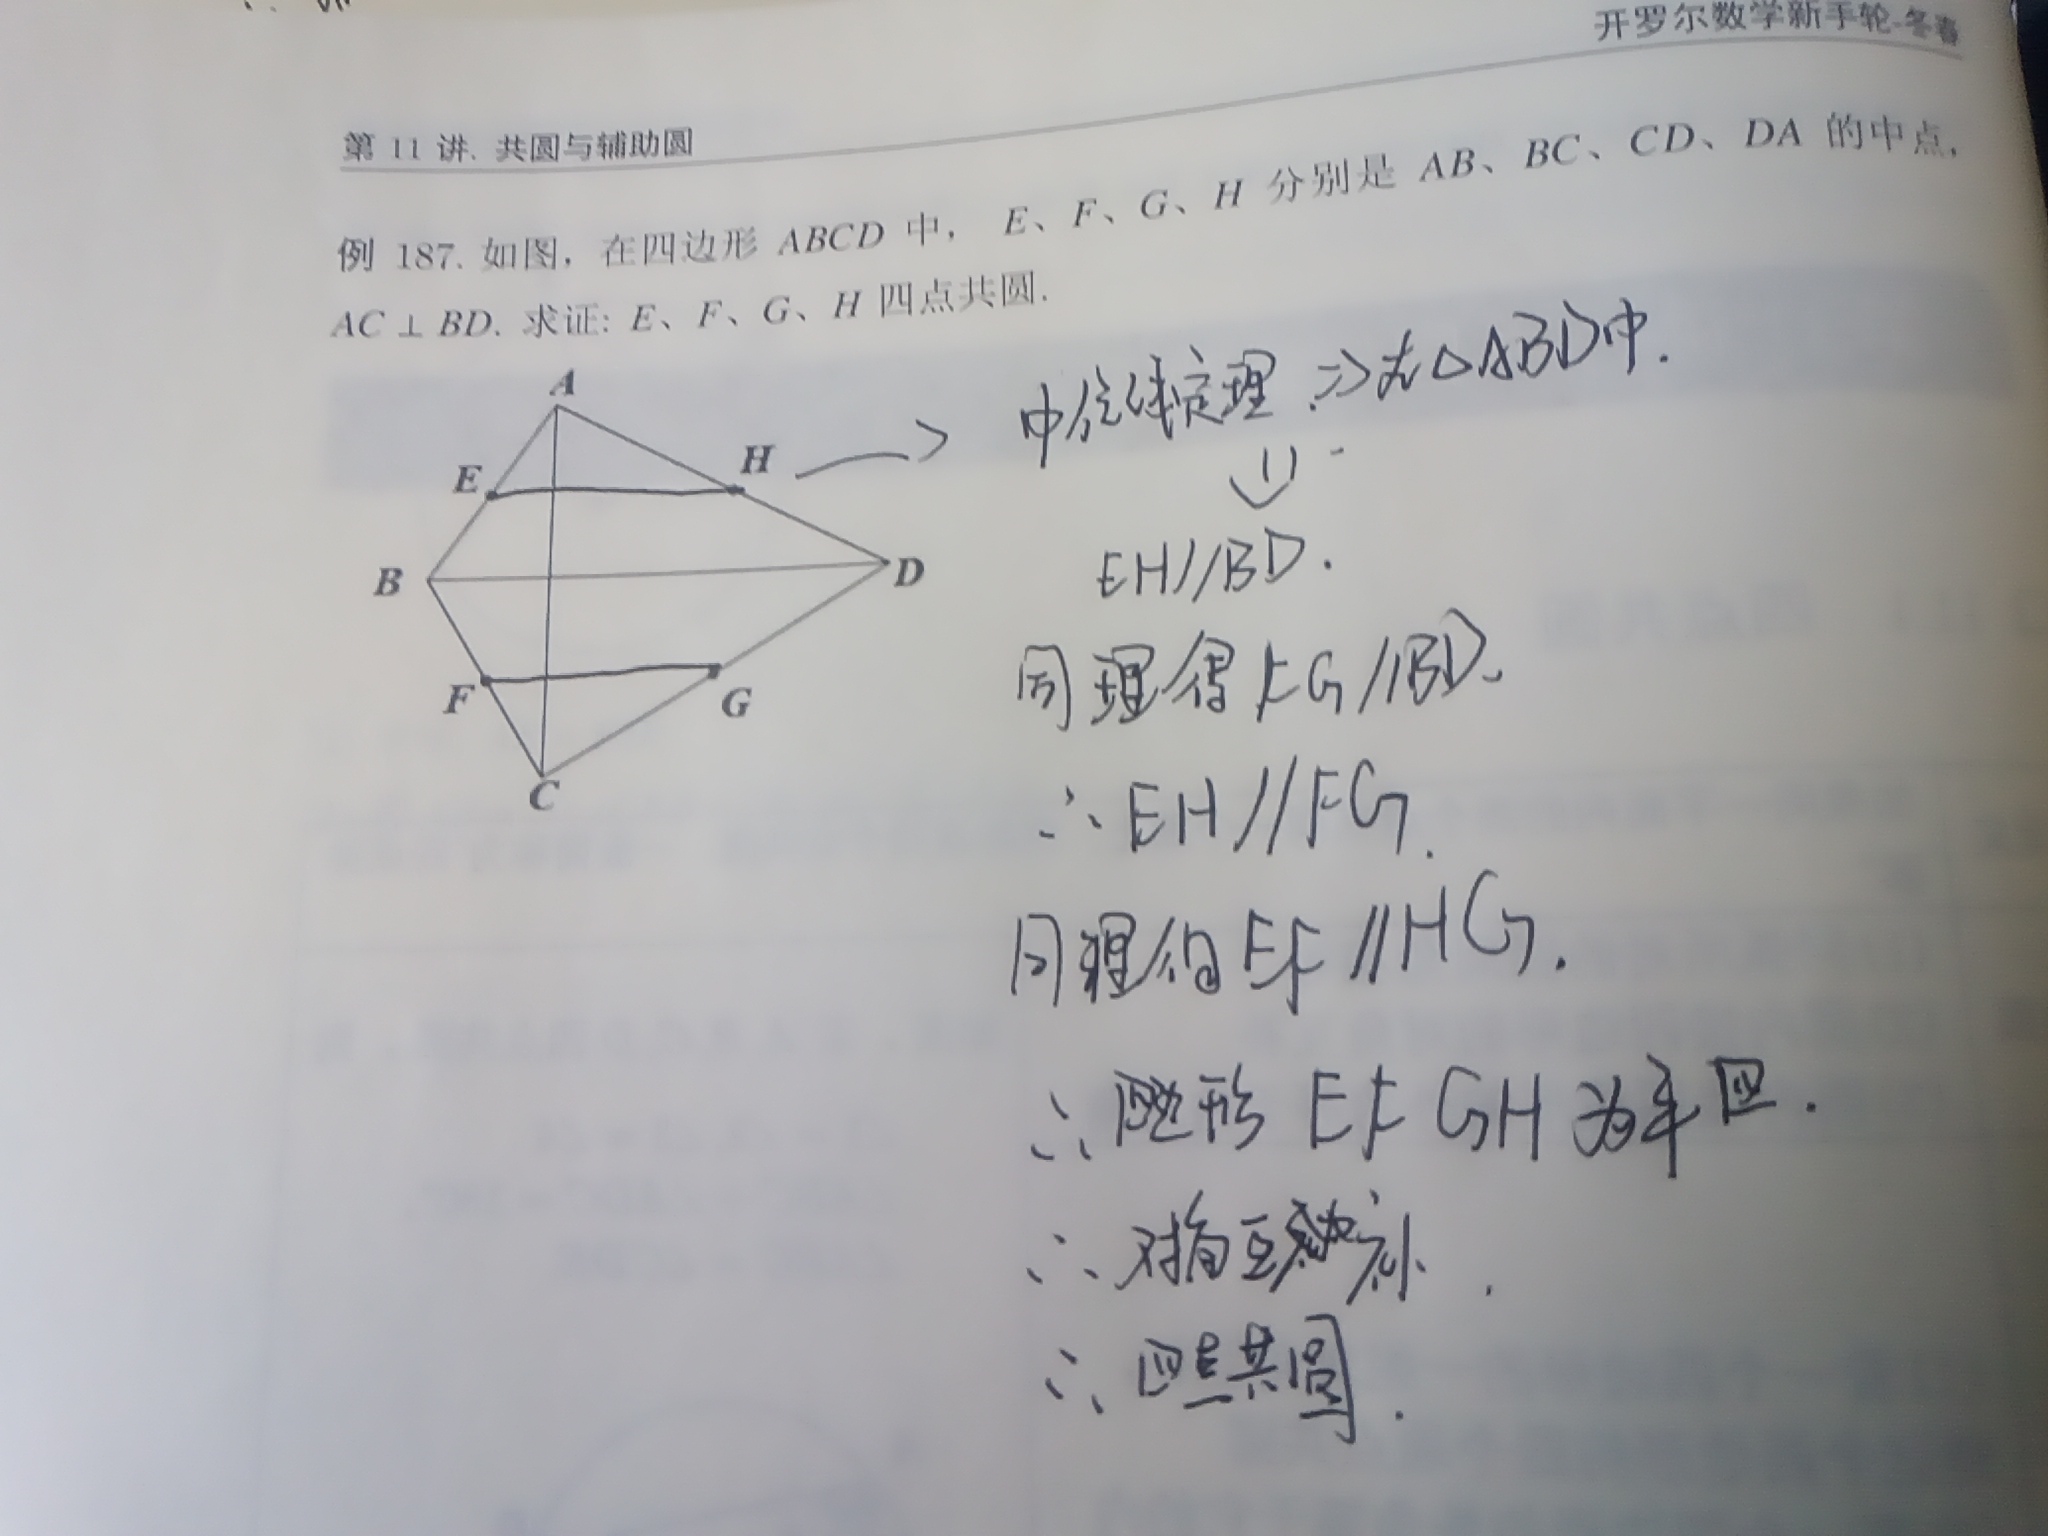 开罗尔数学新手轮-冬春
第 11 讲. 共圆与辅助圆
例 187. 如图，在四边形 ABCD 中， E、F、G、H 分别是 AB、BC、CD、DA 的中点,
AC ⊥ BD. 求证: E、F、G、H 四点共圆.
A
E
H
B
D
F
G
C
中位线定理 ⇒ 在△ABD中.
⇓
EH//BD.
同理得 FG//BD.
∴ EH//FG.
同理得 EF//HG.
∴ 四边形 EFGH 为平四.
∴ 对角互补.
∴ 四点共圆.